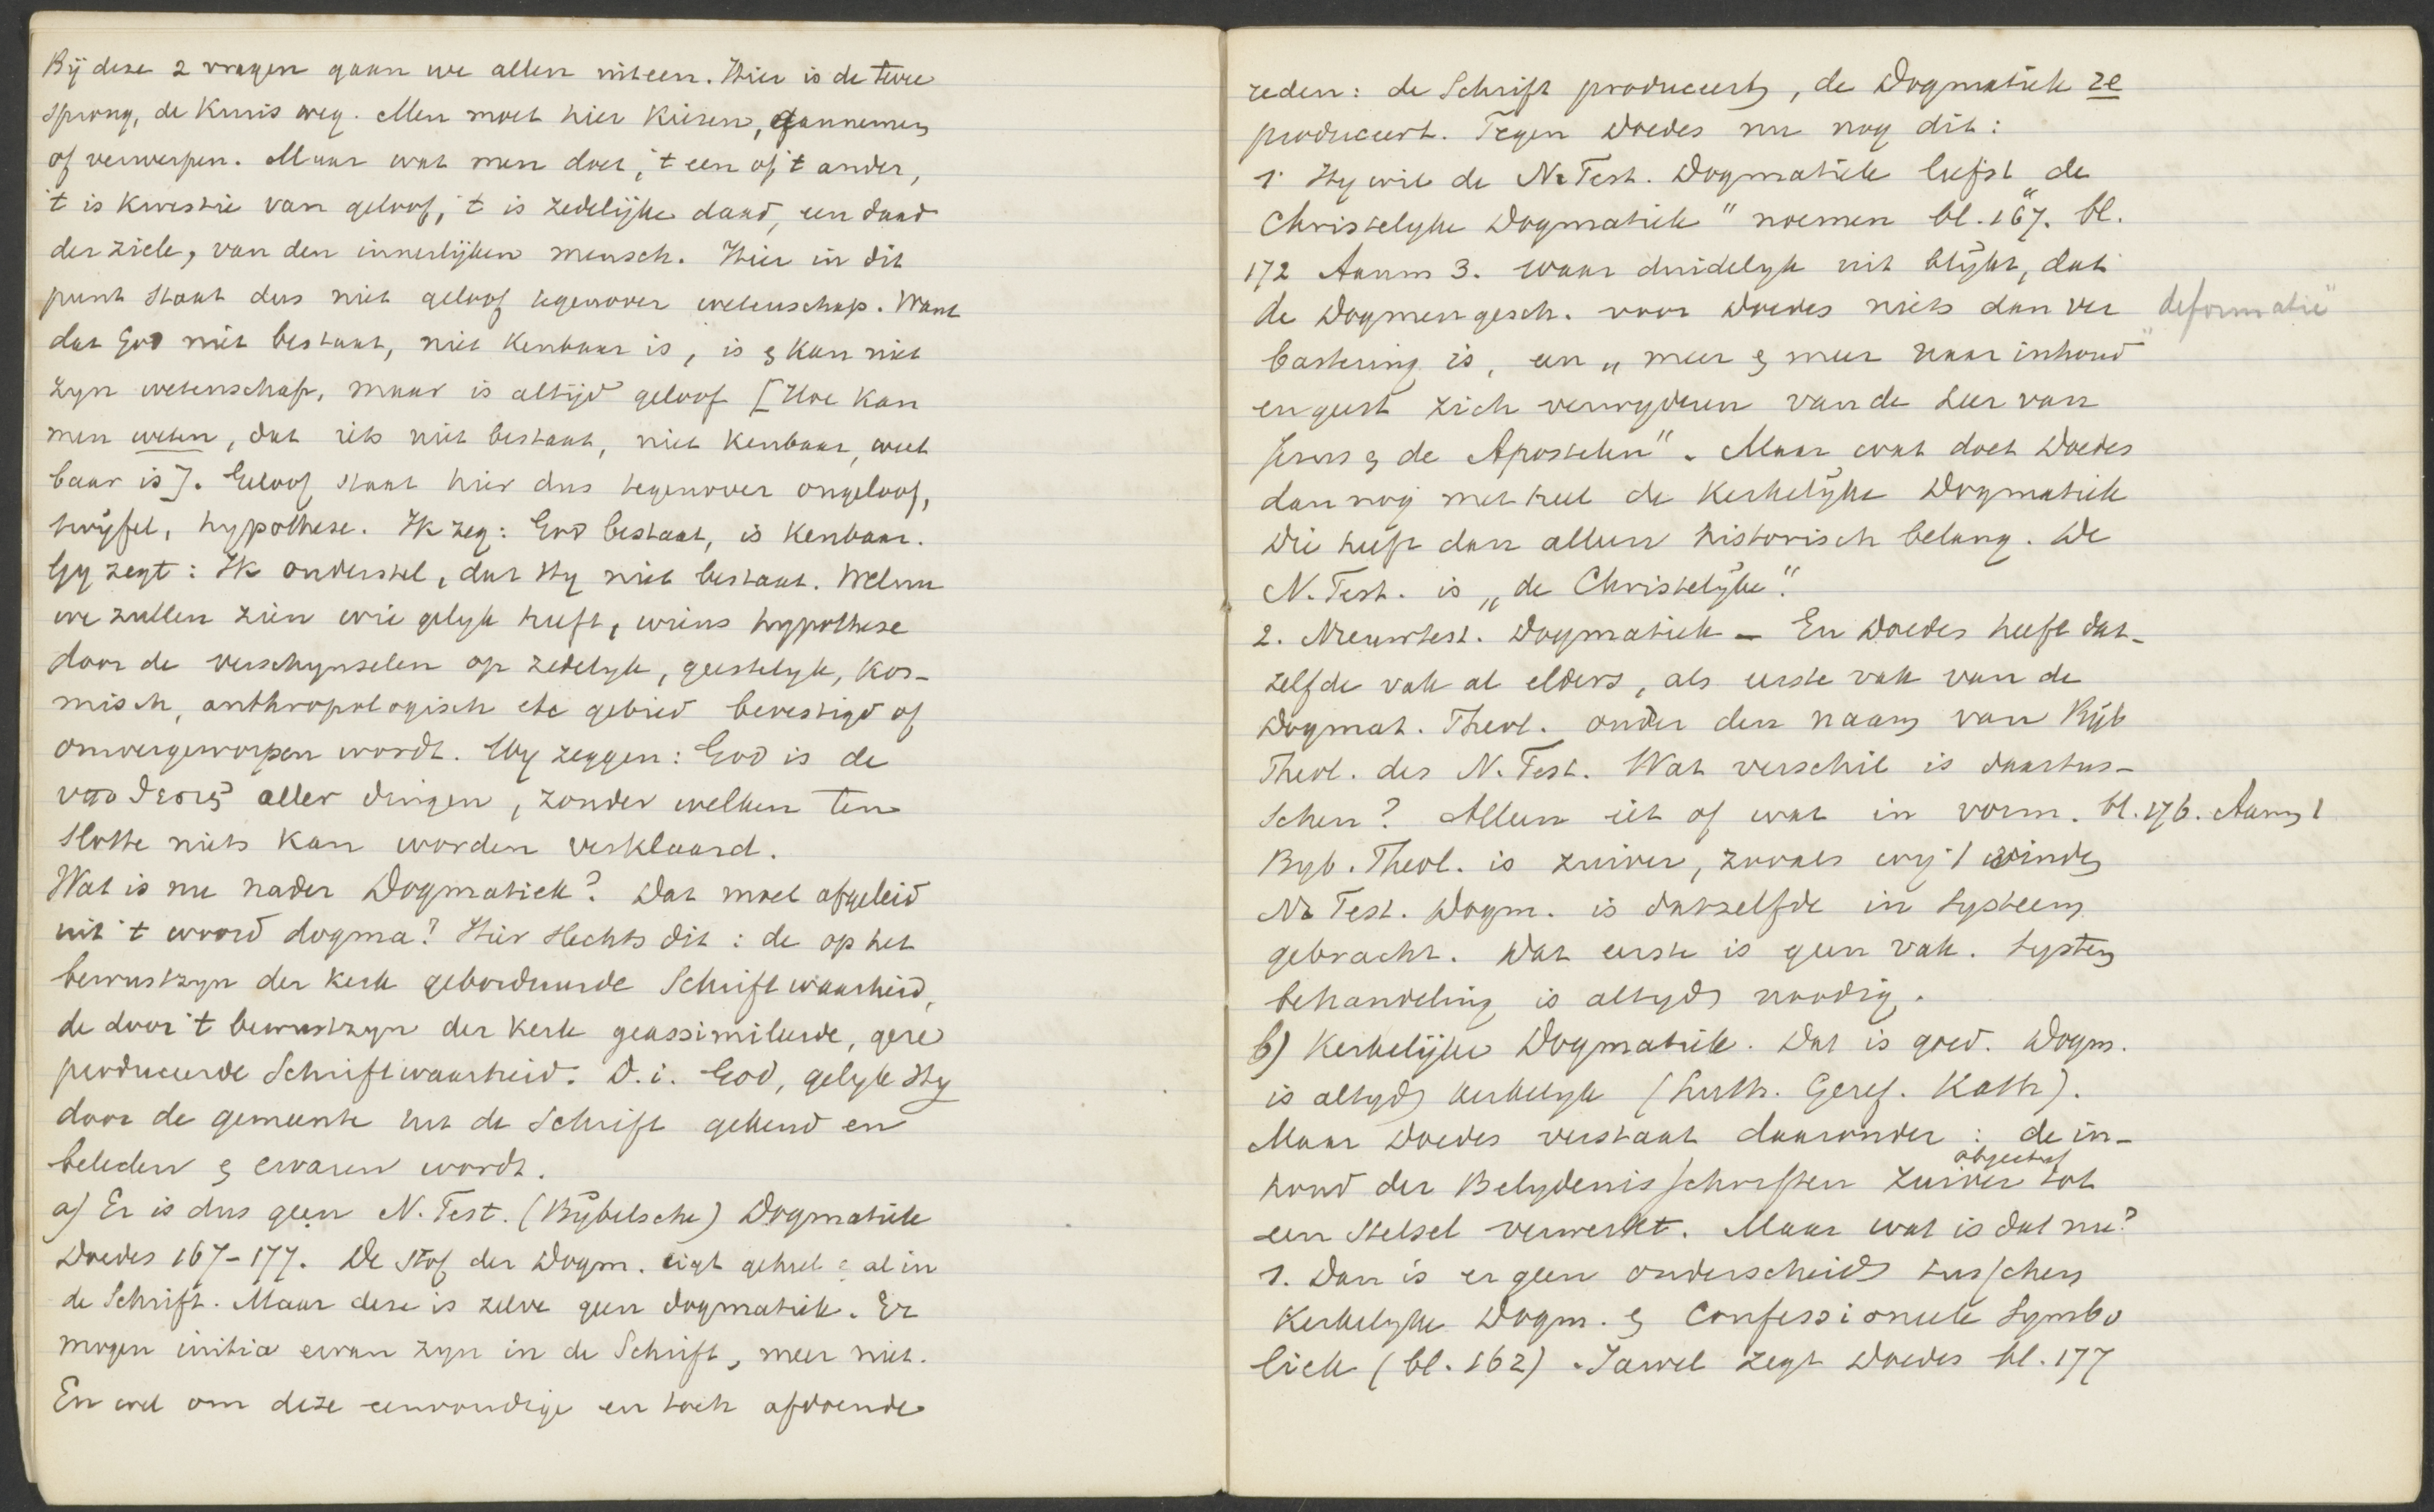 Bij deze 2 vragen gaan we allen uiteen. Hier is de twee
sprong, de Kruis weg. Men moet hier kiezen, aannemen
of verwerpen. Maar wat men doet, 't een of 't ander,
't is kwestie van geloof, 't is zedelijke daad, een daad
der ziele, van den innerlijken mensch. Hier in dit
punt staat dus niet geloof tegenover wetenschap. Want
dat God niet bestaat, niet kenbaar is, is & kan niet
zyn wetenschap, maar is altijd geloof [Hoe kan
men weten, dat iets niet bestaat, niet kenbaar, weet
baar is]. Geloof staat hier dus tegenover ongeloof,
twijfel, hypothese. Ik zeg: God bestaat, is kenbaar.
Gy zegt: Ik onderstel, dat Hy niet bestaat. Welnu
we zullen zien wie gelyk heeft, wiens hypothese
door de verschynselen op zedelyk, geestelyk, kos-
misch, anthropologisch etc gebied bevestigd of
omvergeworpen wordt. Wy zeggen: God is de
υποθεσις aller dingen, zonder welken ten
slotte niets kan worden verklaard.
Wat is nu nader Dogmatiek? Dat moet afgeleid
uit 't woord dogma? Hier slechts dit: de op het
bewustzyn der kerk geborduurde Schriftwaarheid,
de door 't bewustzyn der kerk geassimileerde, gere
produceerde Schriftwaarheid. D.i. God, gelyk Hy
door de gemeente uit de Schrift gekend en
beleden & ervaren wordt.
a) Er is dus geen N. Test. (Bijbelsche) Dogmatiek
Doedes 167-177. De stof der Dogm. ligt geheel & al in
de Schrift. Maar deze is zelve geen dogmatiek. Er
mogen initia ervan zyn in de Schrift, meer niet.
En wel om deze eenvoudige en toch afdoende
reden: de Schrift produceert, de Dogmatiek re
produceert. Tegen Doedes nu nog dit:
1. Hy wil de N. Test. Dogmatiek liefst de
Christelyke Dogmatiek" noemen bl. 167. bl.
172 Aanm 3. waar duidelyk uit blijkt, dat
de Dogmengesch. voor Doedes niets dan ver deformatie"
bastering is, een „meer & meer naar inhoud
en geest zich verwyderen van de Leer van
Jezus & de Apostelen". Maar wat doet Doedes
dan nog met heel de Kerkelijke Dogmatiek
Die heeft dan alleen historisch belang. De
N. Test. is „de Christelijke".
2. Nieuwtest. Dogmatiek - En Doedes heeft dat-
zelfde vak al elders, als eerste vak van de
Dogmat. Theol. onder den naam van Bijb
Theol. des N. Test. Wat verschil is daartus-
schen? Alleen iets of wat in vorm. bl. 176. Aanm 1
Byb. Theol. is zuiver, zooals wij 't vinden
N. Test. Dogm. is datzelfde in systeem
gebracht. Dat eerste is geen vak. System
behandeling is altyd noodig.
b) Kerkelijke Dogmatiek. Dat is goed. Dogm.
is altyd kerkelyk (Luth. Geref. Kath).
Maar Doedes verstaat daaronder: de in-
objectief
houd der Belydenisschriften zuiver tot
een stelsel verwerkt. Maar wat is dat nu?
1. Dan is er geen onderscheid tusschen
Kerkelyke Dogm. & Confessioneele Symbo
liek (bl. 162). Jawel zegt Doedes bl. 177